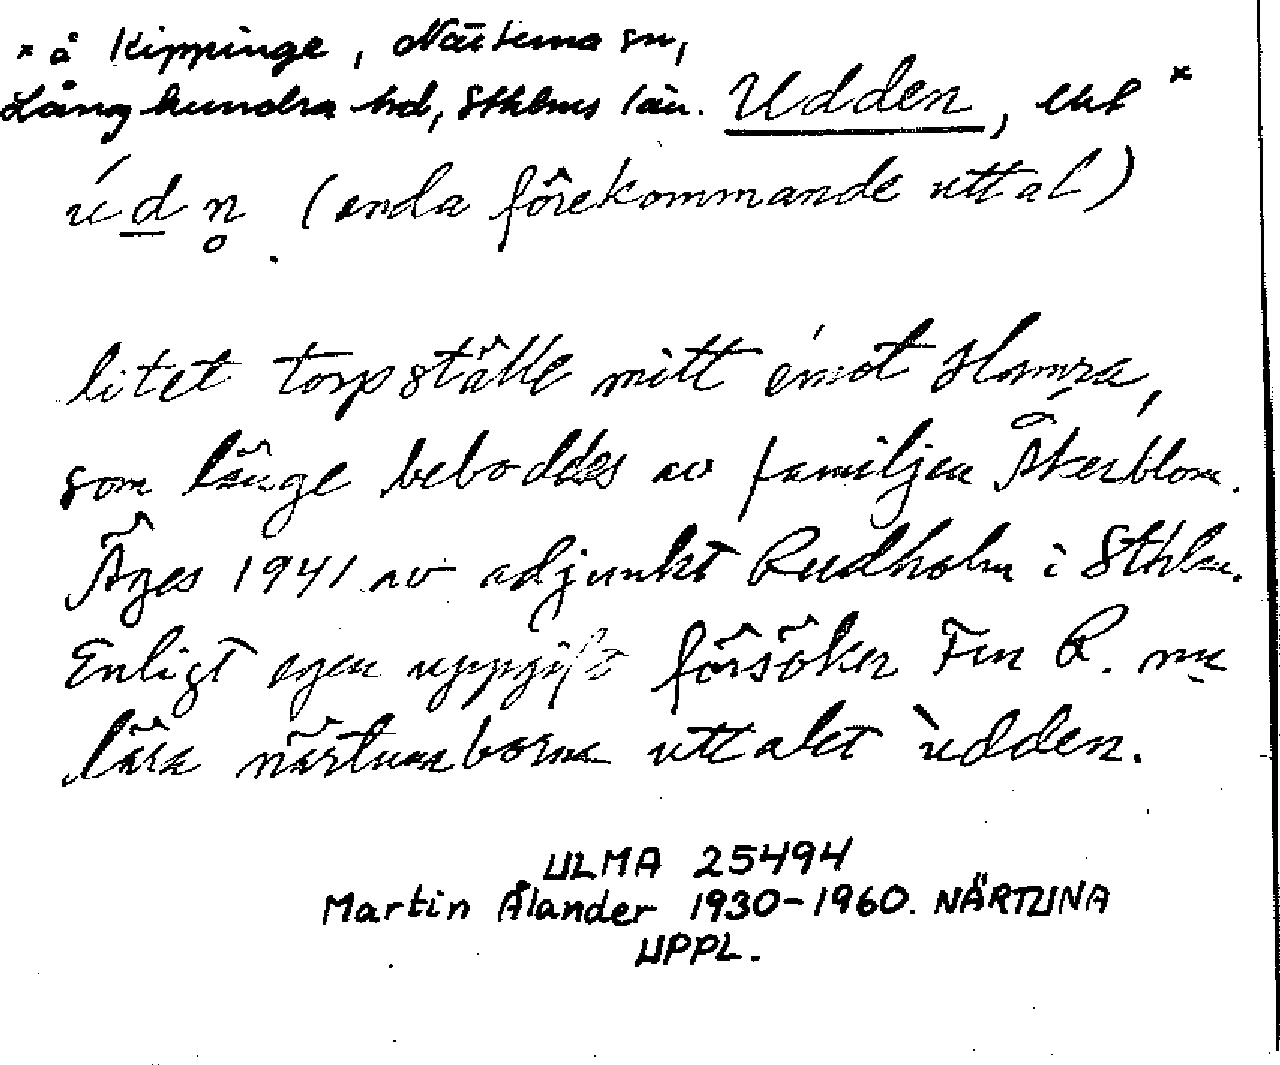 × å Kippinge, Närtuna sn,
Långhundra hd, Sthlms län. Udden, enl ×
údn̥ (enda förekommande uttal)
litet torpställe mitt emot Hamra,
som länge beboddes av familjen Åkerblom.
Äges 1941 av adjunkt Rudholm i Sthlm.
Enligt egen uppgift försöker Frn R. nu
lära närtunaborna uttalet ùdden.
ULMA 25494
Martin Ålander 1930-1960. NÄRTUNA
UPPL.